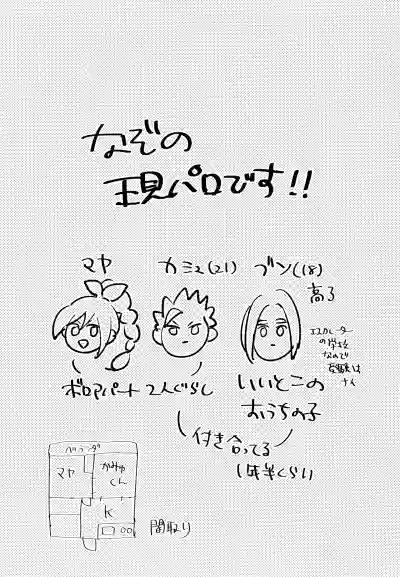 なぞの
現パロです!!
マヤ
カミュ(21)
ブン(18)
高3
エスカレーター
の学校
なので
受験は
ナシ
ボロアパート2人ぐらし
いいとこの
おうちの子
付き合ってる
1年半くらい
ベランダ
マヤ
かみゅ
くん
K
間取り